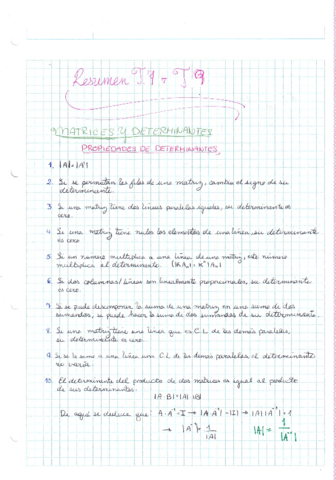 Resumen T1 - T9
MATRICES Y DETERMINANTES
PROPIEDADES DE DETERMINANTES
1. |A| = |Aᵗ|
2. Si se permutan las filas de una matriz, cambia el signo de su
determinante.
3. Si una matriz tiene dos líneas paralelas iguales, su determinante es
cero.
4. Si una matriz tiene nulos los elementos de una línea, su determinante
es cero
5. Si un número multiplica a una línea de una matriz, este número
multiplica al determinante. |K·Aₙ| = Kⁿ|Aₙ|
6. Si dos columnas/líneas son linealmente proporcionales, su determinante
es cero.
7. Si se puede descomponer la suma de una matriz en una suma de dos
sumandos, se puede hacer la suma de dos sumandos de sus determinantes.
8. Si una matriz tiene una línea que es C.L. de las demás paralelas,
su determinante es cero.
9. Si se le suma a una línea una C.L. de las demás paralelas el determinante
no varía.
10. El determinante del producto de dos matrices es igual al producto
de sus determinantes.
|A·B| = |A|·|B|
De aquí se deduce que: A·A⁻¹ = I → |A·A⁻¹| = |I| → |A||A⁻¹| = 1
→ |A⁻¹| = 1/|A| |A| = 1/|A⁻¹|